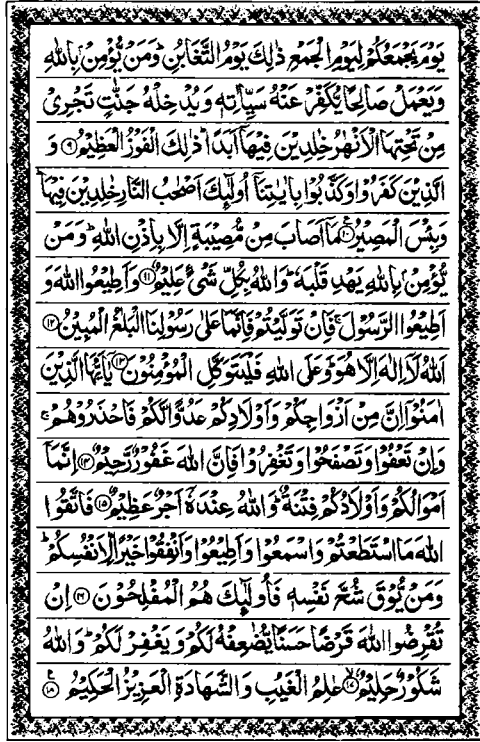 يَوْمَ يَجْمَعُكُمْ لِيَوْمِ الْجَمْعِ ذٰلِكَ يَوْمُ التَّغَابُنِ ؕ وَمَنْ يُّؤْمِنْۢ بِاللّٰهِ
وَيَعْمَلْ صَالِحًا يُّكَفِّرْ عَنْهُ سَيِّاٰتِهٖ وَيُدْخِلْهُ جَنّٰتٍ تَجْرِىْ
مِنْ تَحْتِهَا الْاَنْهٰرُ خٰلِدِيْنَ فِيْهَاۤ اَبَدًا ؕ ذٰلِكَ الْفَوْزُ الْعَظِيْمُ ۹ وَ
الَّذِيْنَ كَفَرُوْا وَكَذَّبُوْا بِاٰيٰتِنَاۤ اُولٰٓئِكَ اَصْحٰبُ النَّارِ خٰلِدِيْنَ فِيْهَا ؕ
وَبِئْسَ الْمَصِيْرُ ۱۰ مَاۤ اَصَابَ مِنْ مُّصِيْبَةٍ اِلَّا بِاِذْنِ اللّٰهِ ؕ وَمَنْ
يُّؤْمِنْۢ بِاللّٰهِ يَهْدِ قَلْبَهٗ ؕ وَاللّٰهُ بِكُلِّ شَىْءٍ عَلِيْمٌ ۱۱ وَاَطِيْعُوا اللّٰهَ وَ
اَطِيْعُوا الرَّسُوْلَ ۚ فَاِنْ تَوَلَّيْتُمْ فَاِنَّمَا عَلٰى رَسُوْلِنَا الْبَلٰغُ الْمُبِيْنُ ۱۲
اَللّٰهُ لَاۤ اِلٰهَ اِلَّا هُوَ ؕ وَعَلَى اللّٰهِ فَلْيَتَوَكَّلِ الْمُؤْمِنُوْنَ ۱۳ يٰۤاَيُّهَا الَّذِيْنَ
اٰمَنُوْۤا اِنَّ مِنْ اَزْوَاجِكُمْ وَاَوْلَادِكُمْ عَدُوًّا لَّكُمْ فَاحْذَرُوْهُمْ ۚ
وَاِنْ تَعْفُوْا وَتَصْفَحُوْا وَتَغْفِرُوْا فَاِنَّ اللّٰهَ غَفُوْرٌ رَّحِيْمٌ ۱۴ اِنَّمَاۤ
اَمْوَالُكُمْ وَاَوْلَادُكُمْ فِتْنَةٌ ؕ وَاللّٰهُ عِنْدَهٗۤ اَجْرٌ عَظِيْمٌ ۱۵ فَاتَّقُوا
اللّٰهَ مَا اسْتَطَعْتُمْ وَاسْمَعُوْا وَاَطِيْعُوْا وَاَنْفِقُوْا خَيْرًا لِّاَنْفُسِكُمْ ؕ
وَمَنْ يُّوْقَ شُحَّ نَفْسِهٖ فَاُولٰٓئِكَ هُمُ الْمُفْلِحُوْنَ ۱۶ اِنْ
تُقْرِضُوا اللّٰهَ قَرْضًا حَسَنًا يُّضٰعِفْهُ لَكُمْ وَيَغْفِرْ لَكُمْ ؕ وَاللّٰهُ
شَكُوْرٌ حَلِيْمٌ ۱۷ عٰلِمُ الْغَيْبِ وَالشَّهَادَةِ الْعَزِيْزُ الْحَكِيْمُ ۱۸